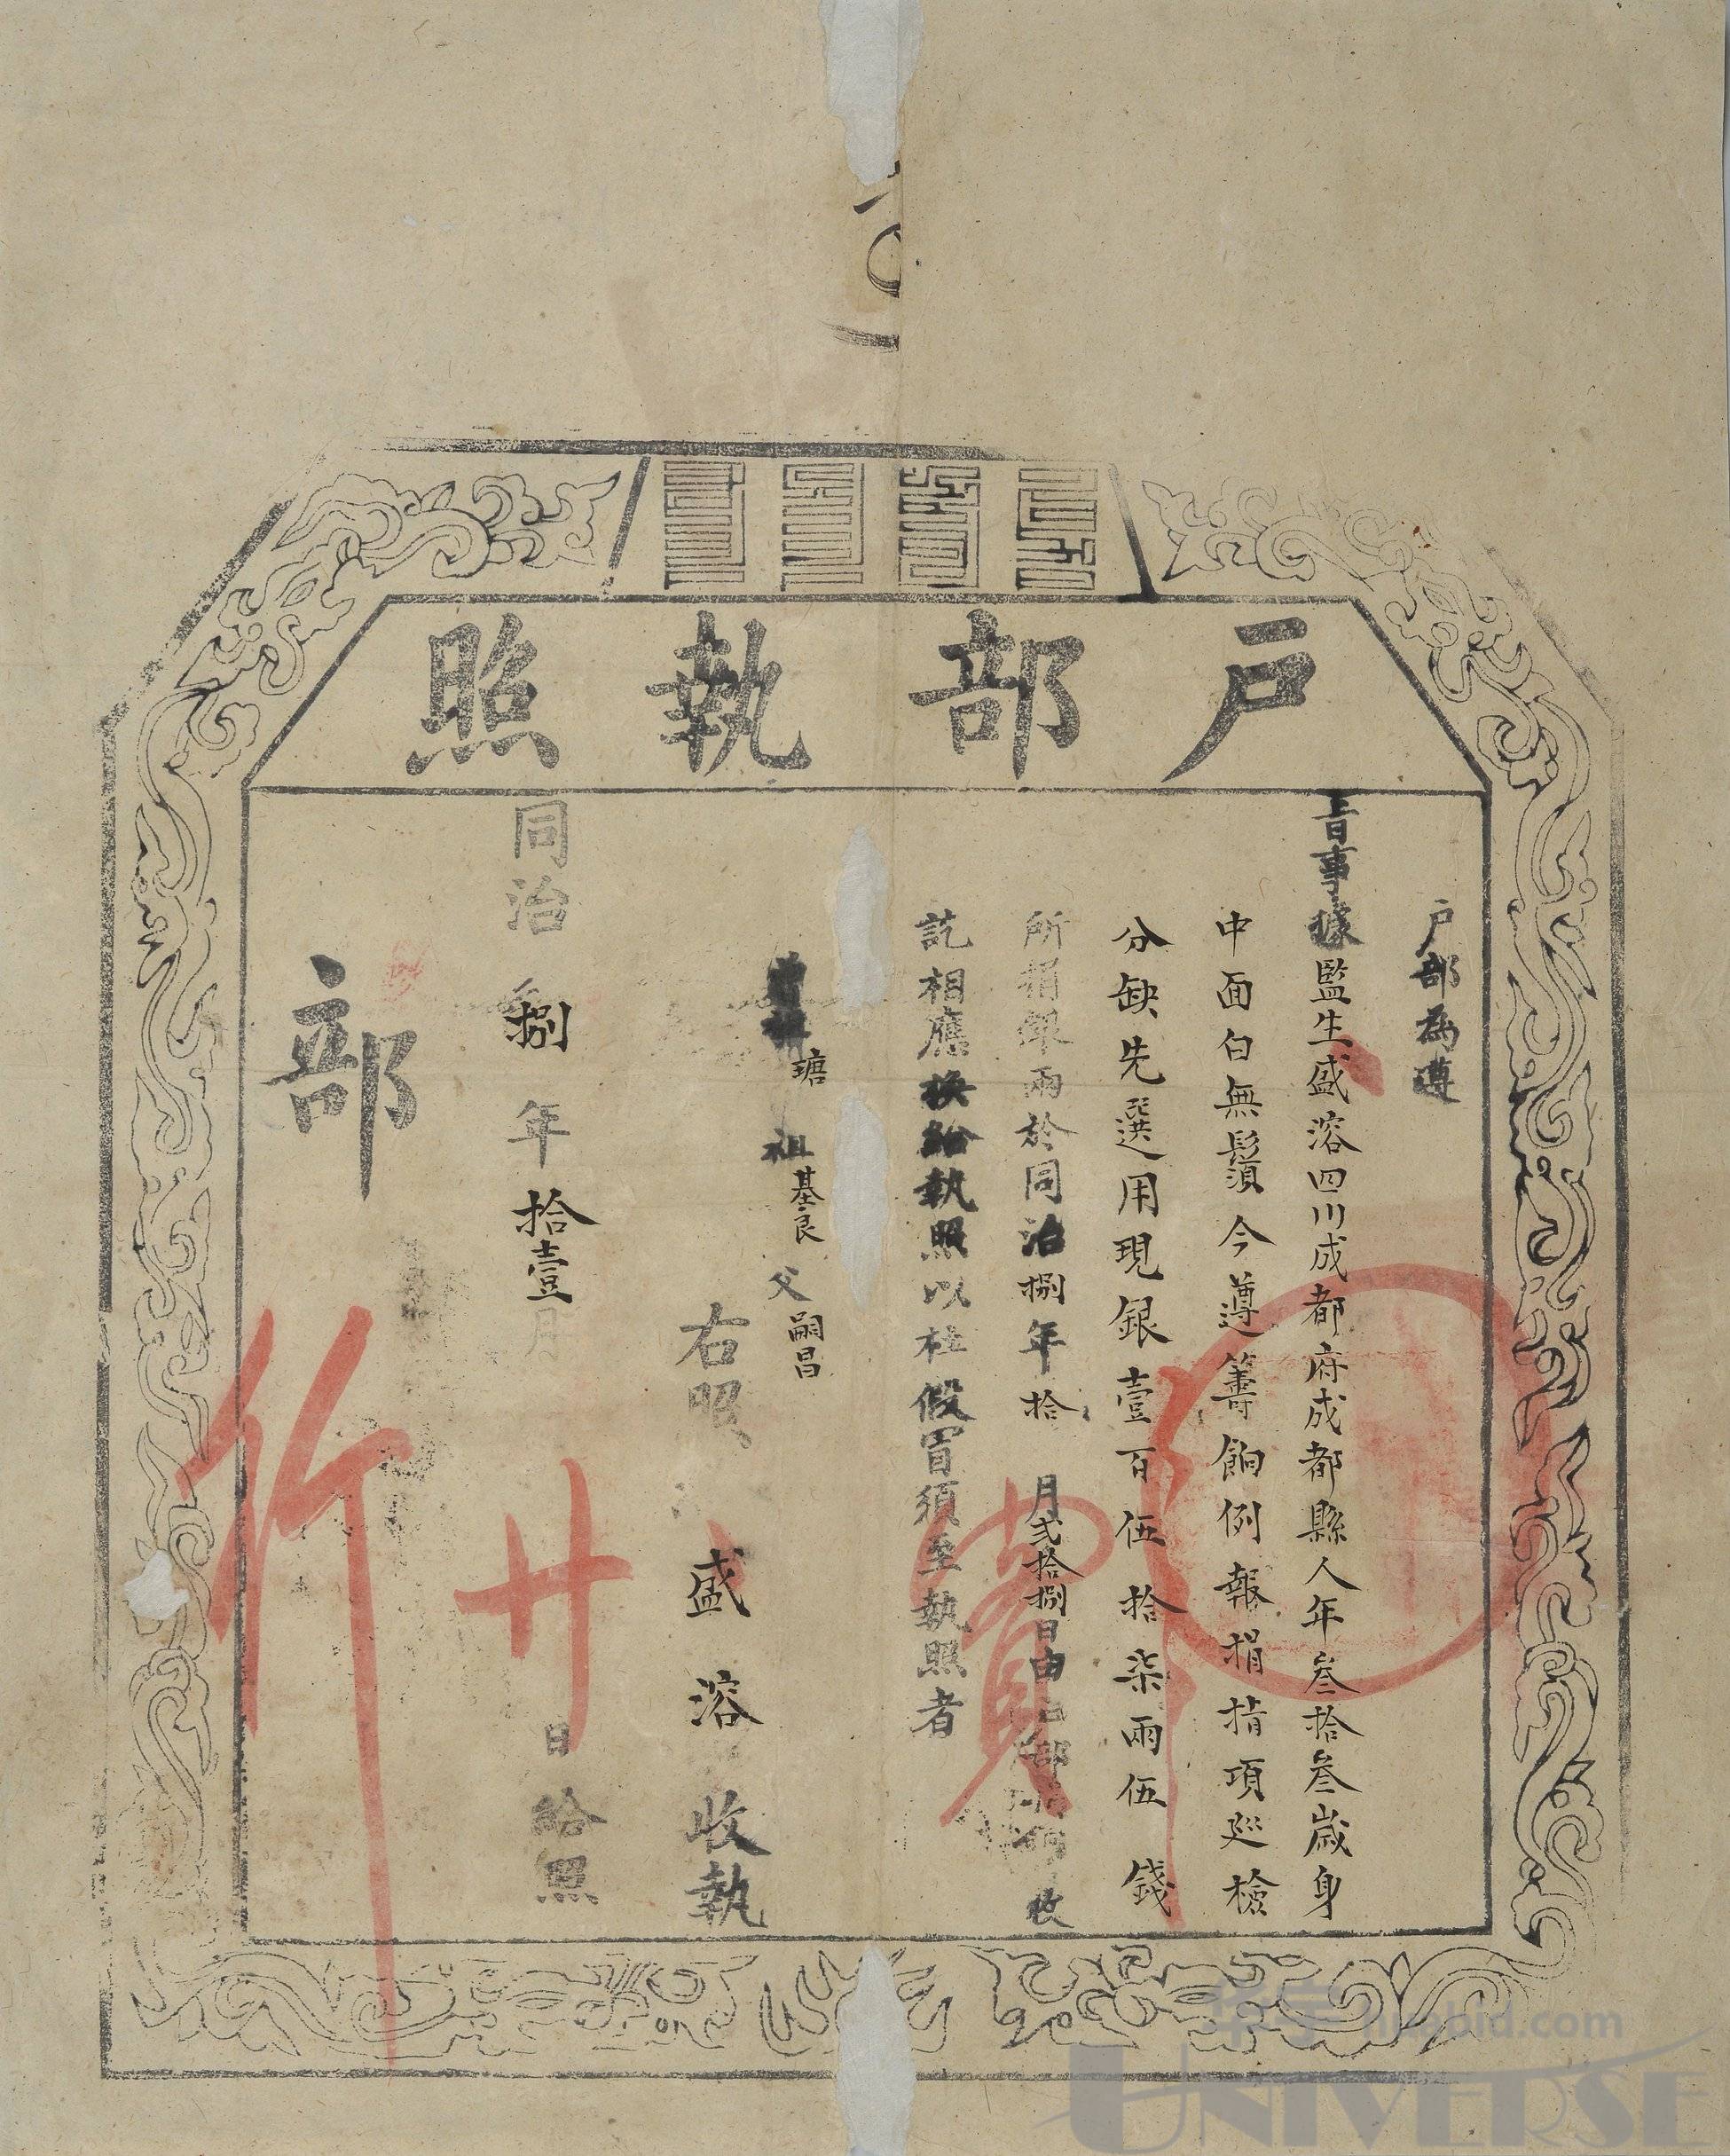 戶部執照
戶部為遵
旨事據監生盛溶四川成都府成都縣人年叁拾叁歲身
中面白無鬚今遵籌餉例報捐指項巡檢
分缺先選用現銀壹百伍拾柒兩伍錢
所捐銀兩於同治捌年拾月弍拾捌日由 部 收
訖相應換給執照以杜假冒須至執照者
曾祖瑭祖基良父嗣昌
右照盛溶收執
同治捌年拾壹月廿日給照
部
行
huabid.com
UNIVERSE